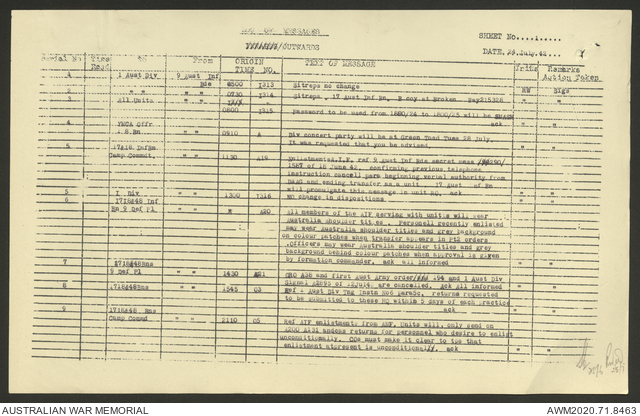 LOG OF MESSAGES
SHEET No....1.....
/OUTWARDS
DATE. 24 July.42...
Serial No Time Recd. To From ORIGIN TIME NO. TEXT OF MESSAGE Writs Remarks Action Taken
1 Aust Div 9 Aust Inf Bde 0500 T313 Sitreps no change
" " " " 0730 T314 Sitreps . 17 Aust Inf Bn, B coy at Broken Bay215328 RW Sigs
3 All Units " " 0800 T315 Password to be used from 1800/24 to 1800/25 will be
ack " "
4 YMCA Offr " " 0910 A Div concert party will be at Green Toad Tues 28 July.
It was requested that you be advised. " "
5 Camp Commdt. " " 1130 A19 Enlistments A.I.F. ref 9 Aust Inf Bde secret memo
1567 of 18 June 42, confirming previous telephone
instruction cancell para beginning verbal authority from
and ending transfer as a unit 17 Aust of Bn
will promulgate this message in unit RO. ack " "
5 1 Div " " 1300 T316 no change in dispositions. " "
6 17 18&48 Inf
Bn 9 Def Pl " " A20 All members of the AIF serving with units will wear
Australia shoulder titles. Personell recently enlisted
may wear Australia shoulder titles and grey background
on colour patches when transfer appears in Pt2 orders
.Officers may wear Australia shoulder titles and grey
background behind colour patches when approval is given
by formation commander. ack all informed " "
7 1718&48Bns
9 Def Pl " " 1430 A21 GRO A38 and first Aust Army order 194 and 1 Aust Div
Signal of 12July are cancelled. Ack All informed " "
8 1718&48Bns " " 1545 G2 Ref 1 Aust Div Tng Instn No6 para5c. returns requested
to be submitted to these HQ within 3 days of each practice
ack " "
9 1718&48 Bns
Camp Commd " " 2110 G5 Ref AIF enlistments from AMF. Units will, only send on
returns for personnel who desire to enlist
unconditionally. COs must make it clear to tps that
enlistment atpresent is unconditional. ack " "
AUSTRALIAN WAR MEMORIAL
AWM2020.71.8463